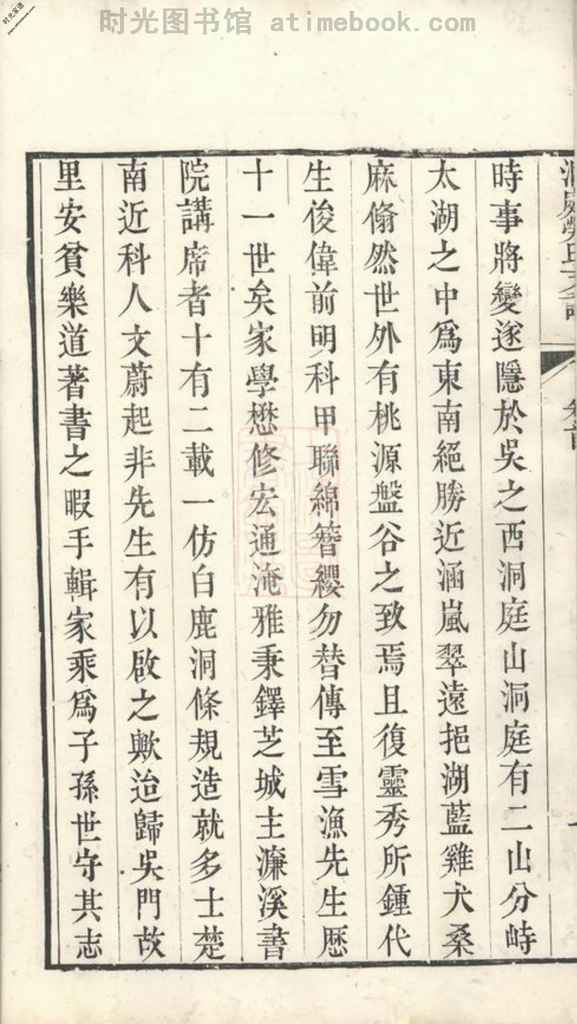 时光图书馆 atimebook.com
洞庭勞氏支譜
時事將變遂隱於吳之西洞庭山洞庭有二山分峙
太湖之中為東南絕勝近涵嵐翠遠挹湖藍雞犬桑
麻翛然世外有桃源盤谷之致焉且復靈秀所鍾代
生俊偉前明科甲聯綿簪纓勿替傳至雪漁先生歷
十一世矣家學懋修宏通淹雅秉鐸芝城主濂溪書
院講席者十有二載一仿白鹿洞條規造就多士楚
南近科人文蔚起非先生有以啟之歟迨歸吳門故
里安貧樂道著書之暇手輯家乘為子孫世守其志